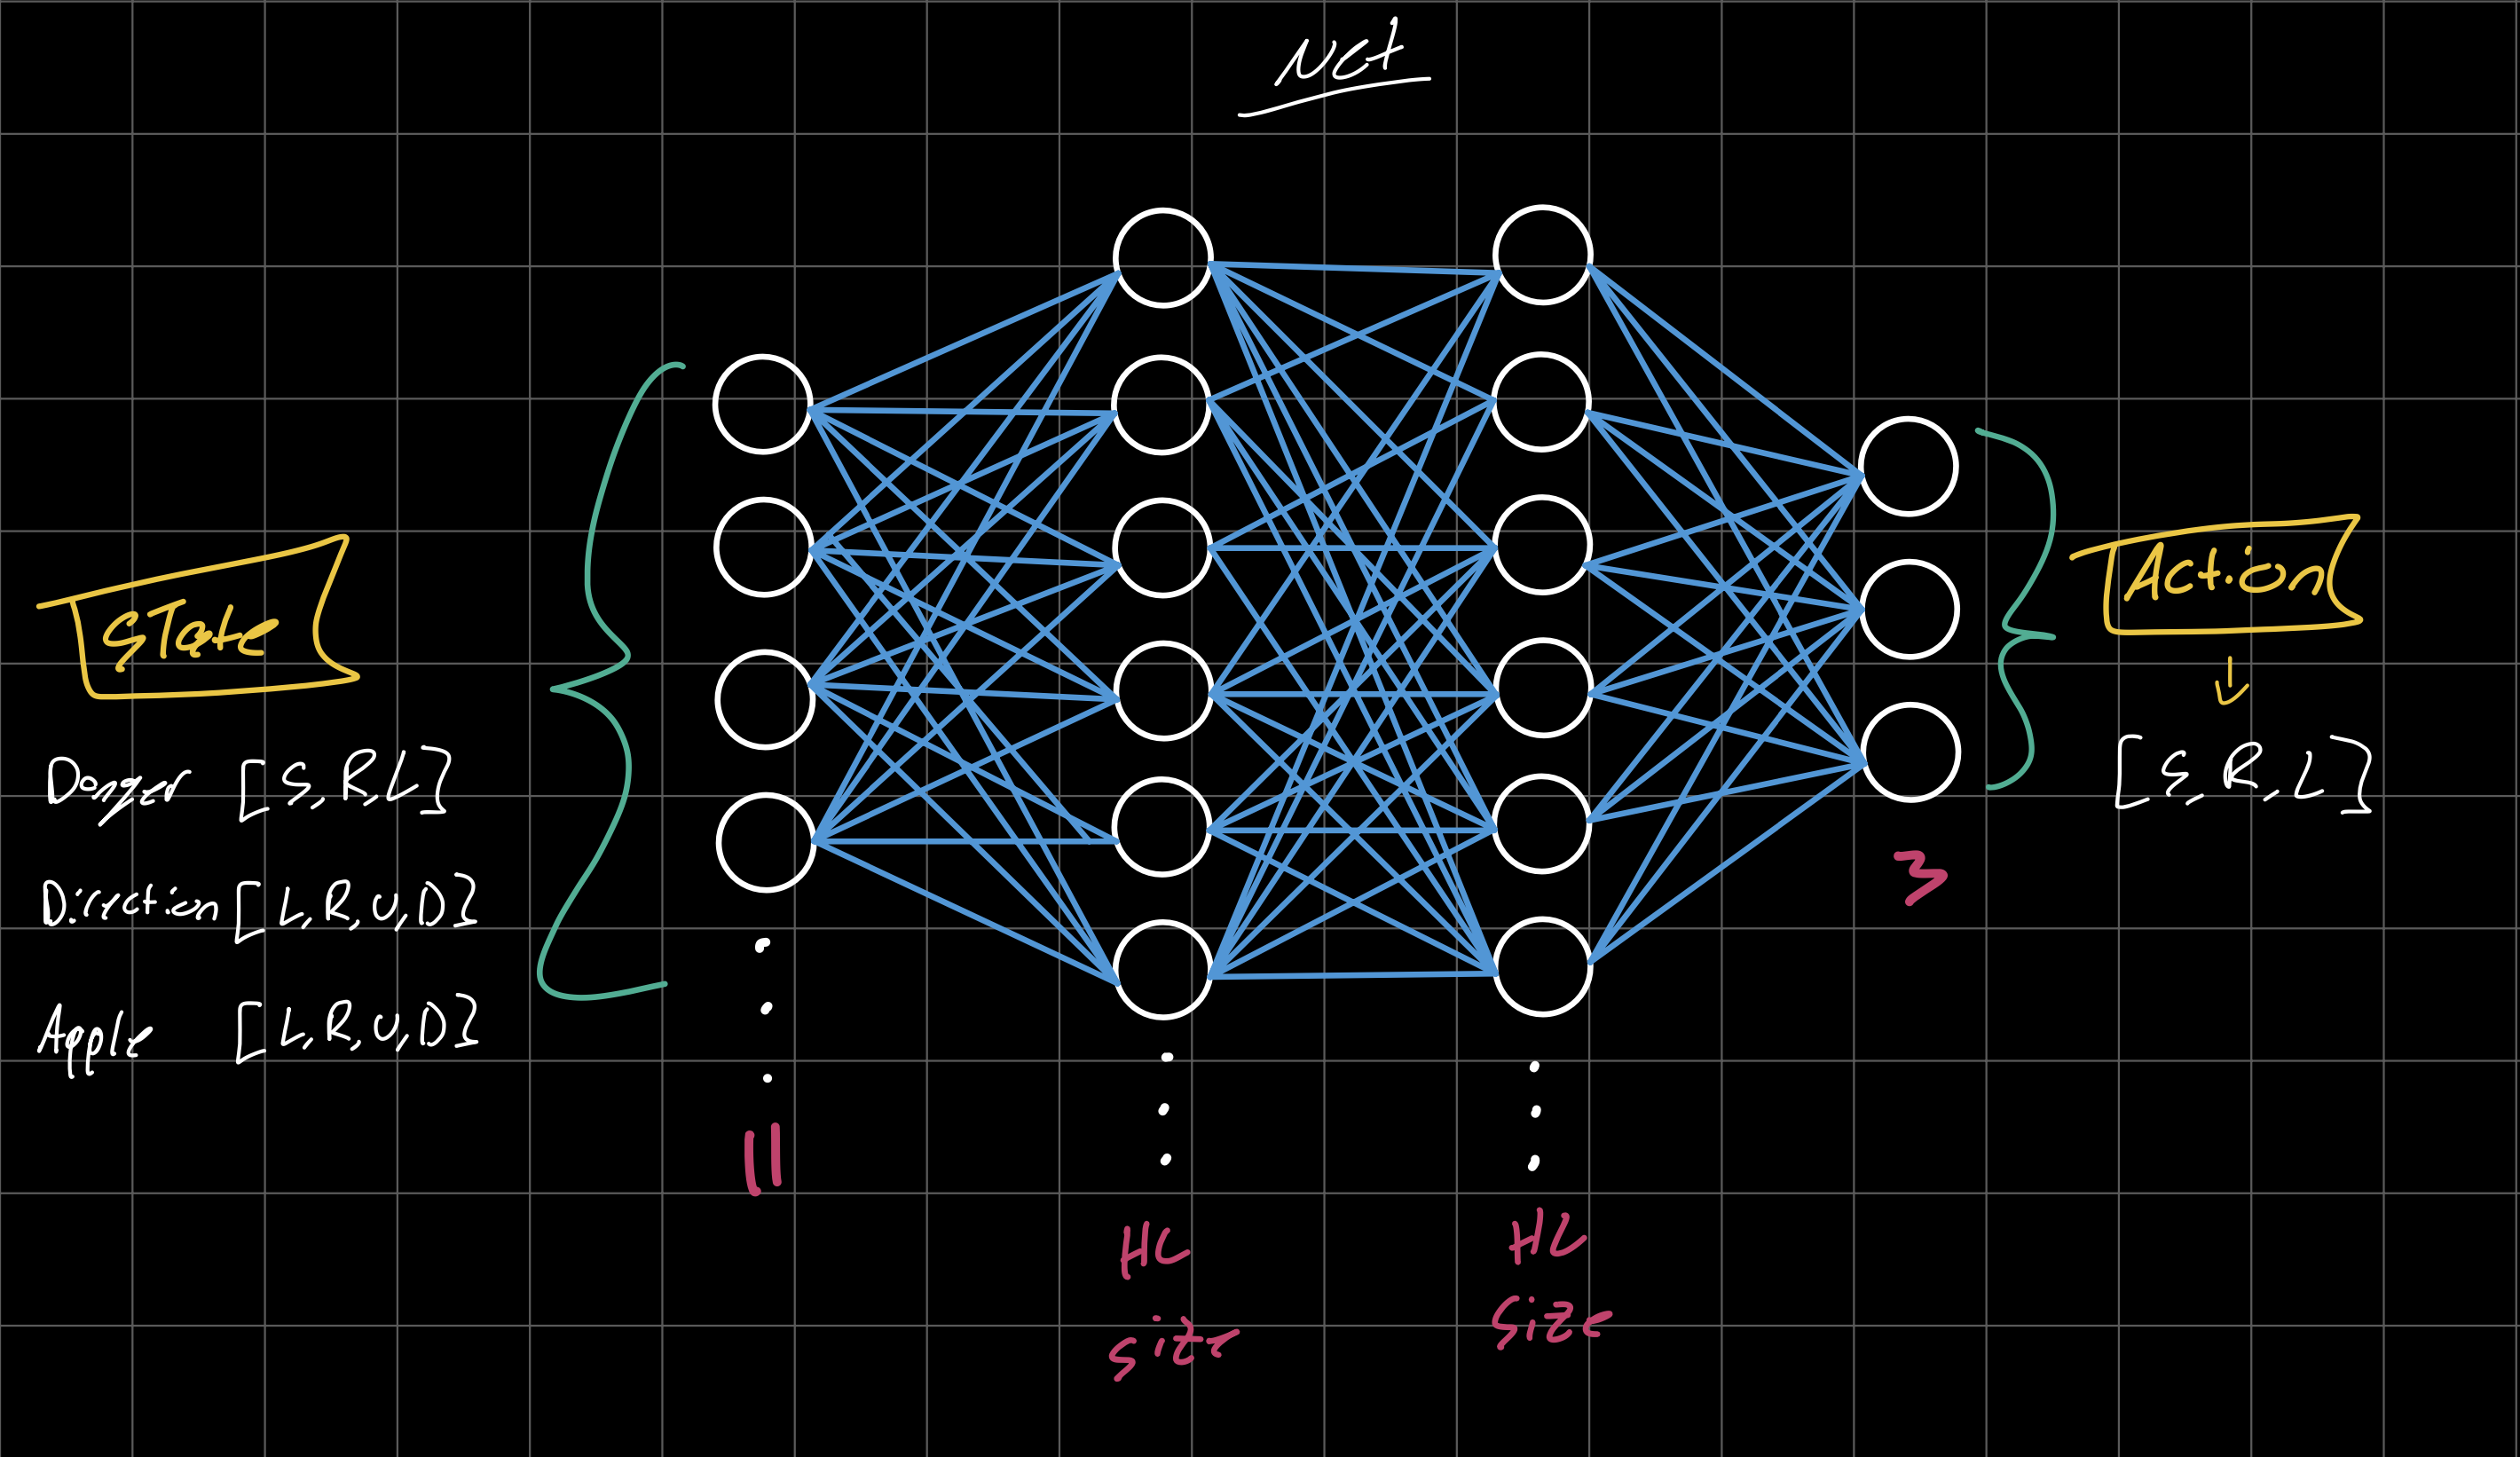 Net
State
Danger [S, R, L]
Direction [L, R, U, D]
Apple [L, R, U, D]
11
HL
size
HL
size
3
Action
↓
[S, R, L]